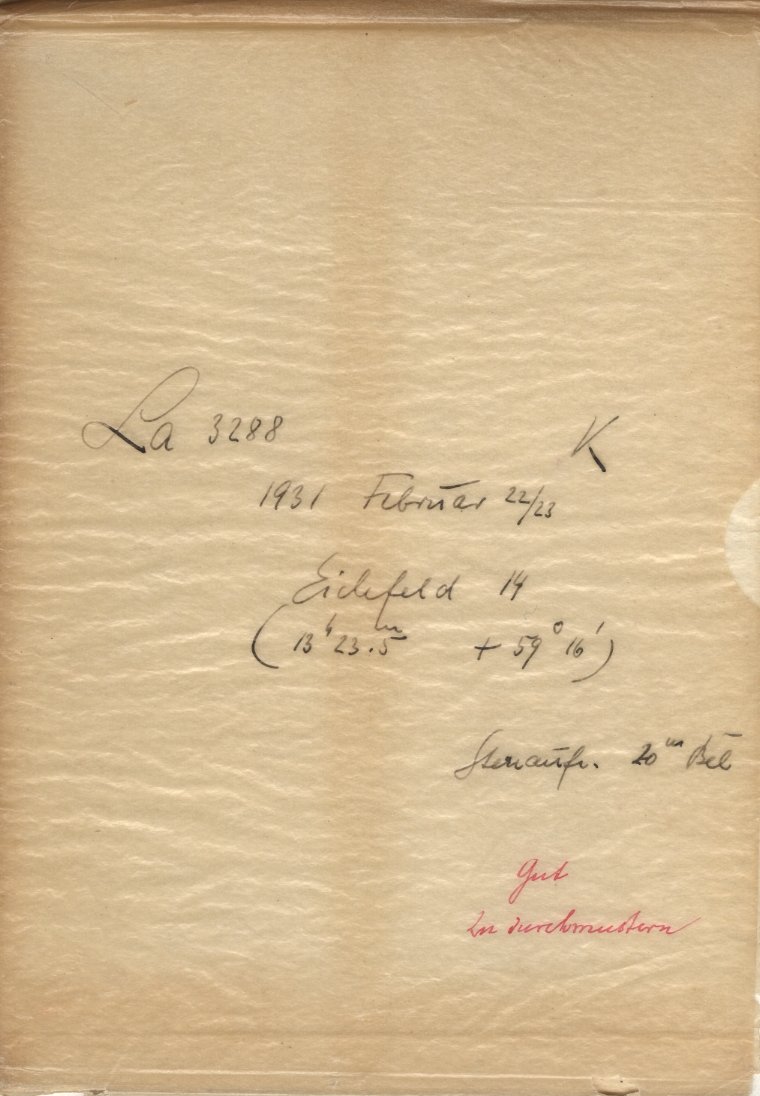 La 3288 K
1931 Februar 22/23
Eichfeld 14
(13ʰ 23.5ᵐ + 59° 16')
Steraufn. 20ᵐ Bel
Gut
zu durchmustern